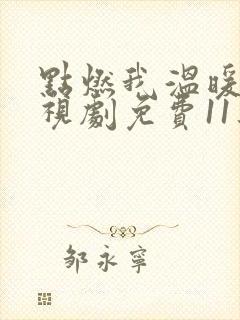 點燃我溫暖
視劇免費11
鄒永寧